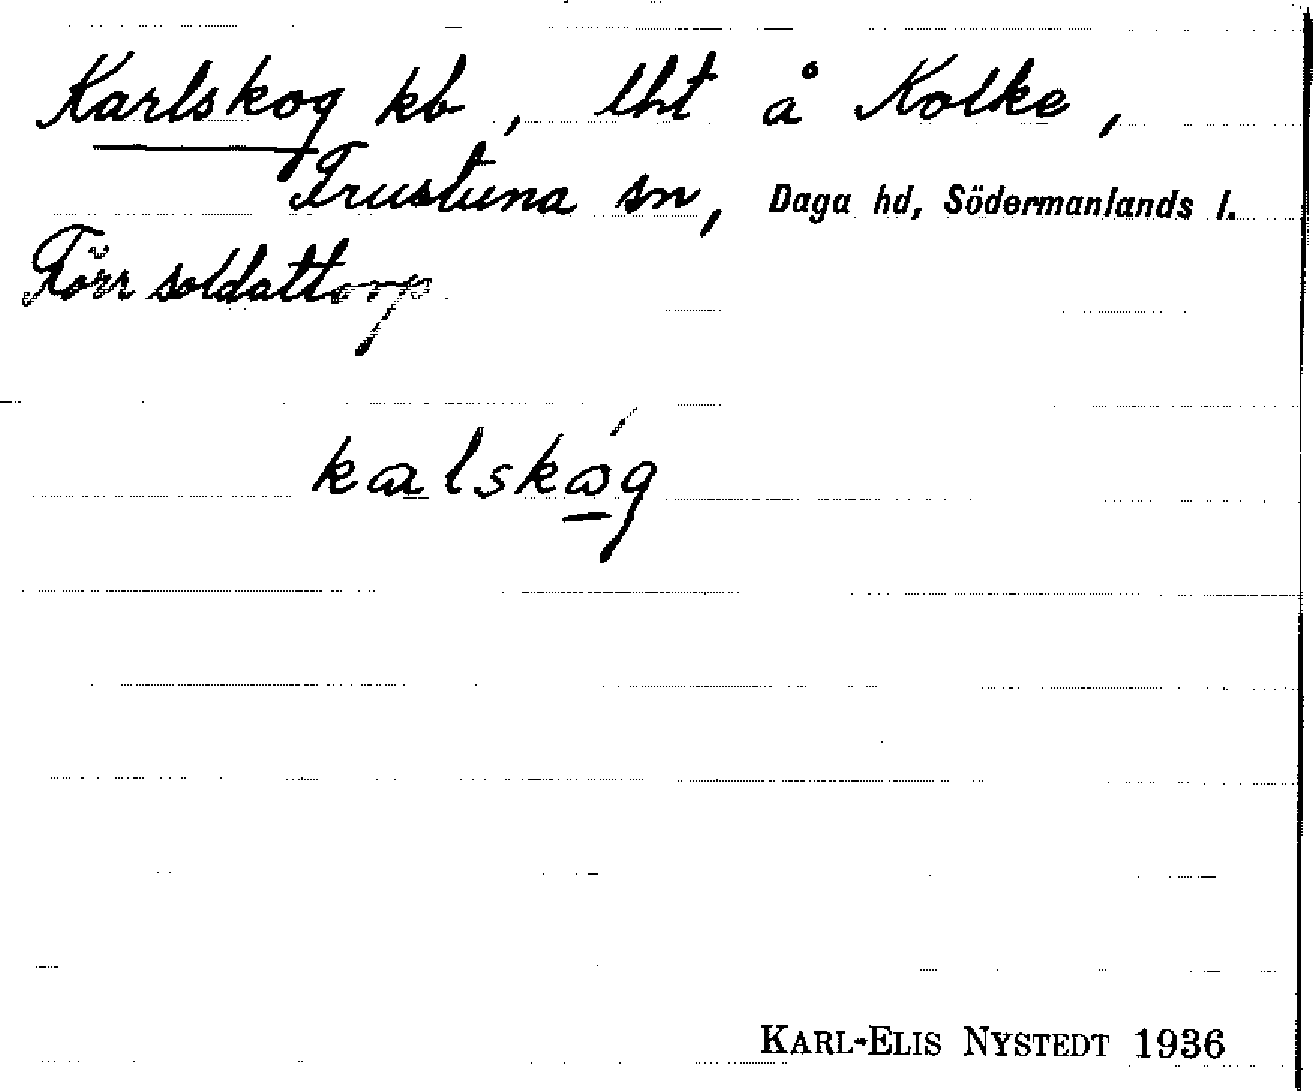 Karlskog kb, lht å Kolke,
Frustuna sn, Daga hd, Södermanlands l.
Förr soldattorp
kalskóg
KARL-ELIS NYSTEDT 1936